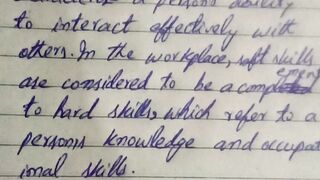 a person's ability
to interact effectively with
others. In the workplace, soft skills
are considered to be a complement
to hard skills, which refer to a
persons knowledge and occupat
ional skills.